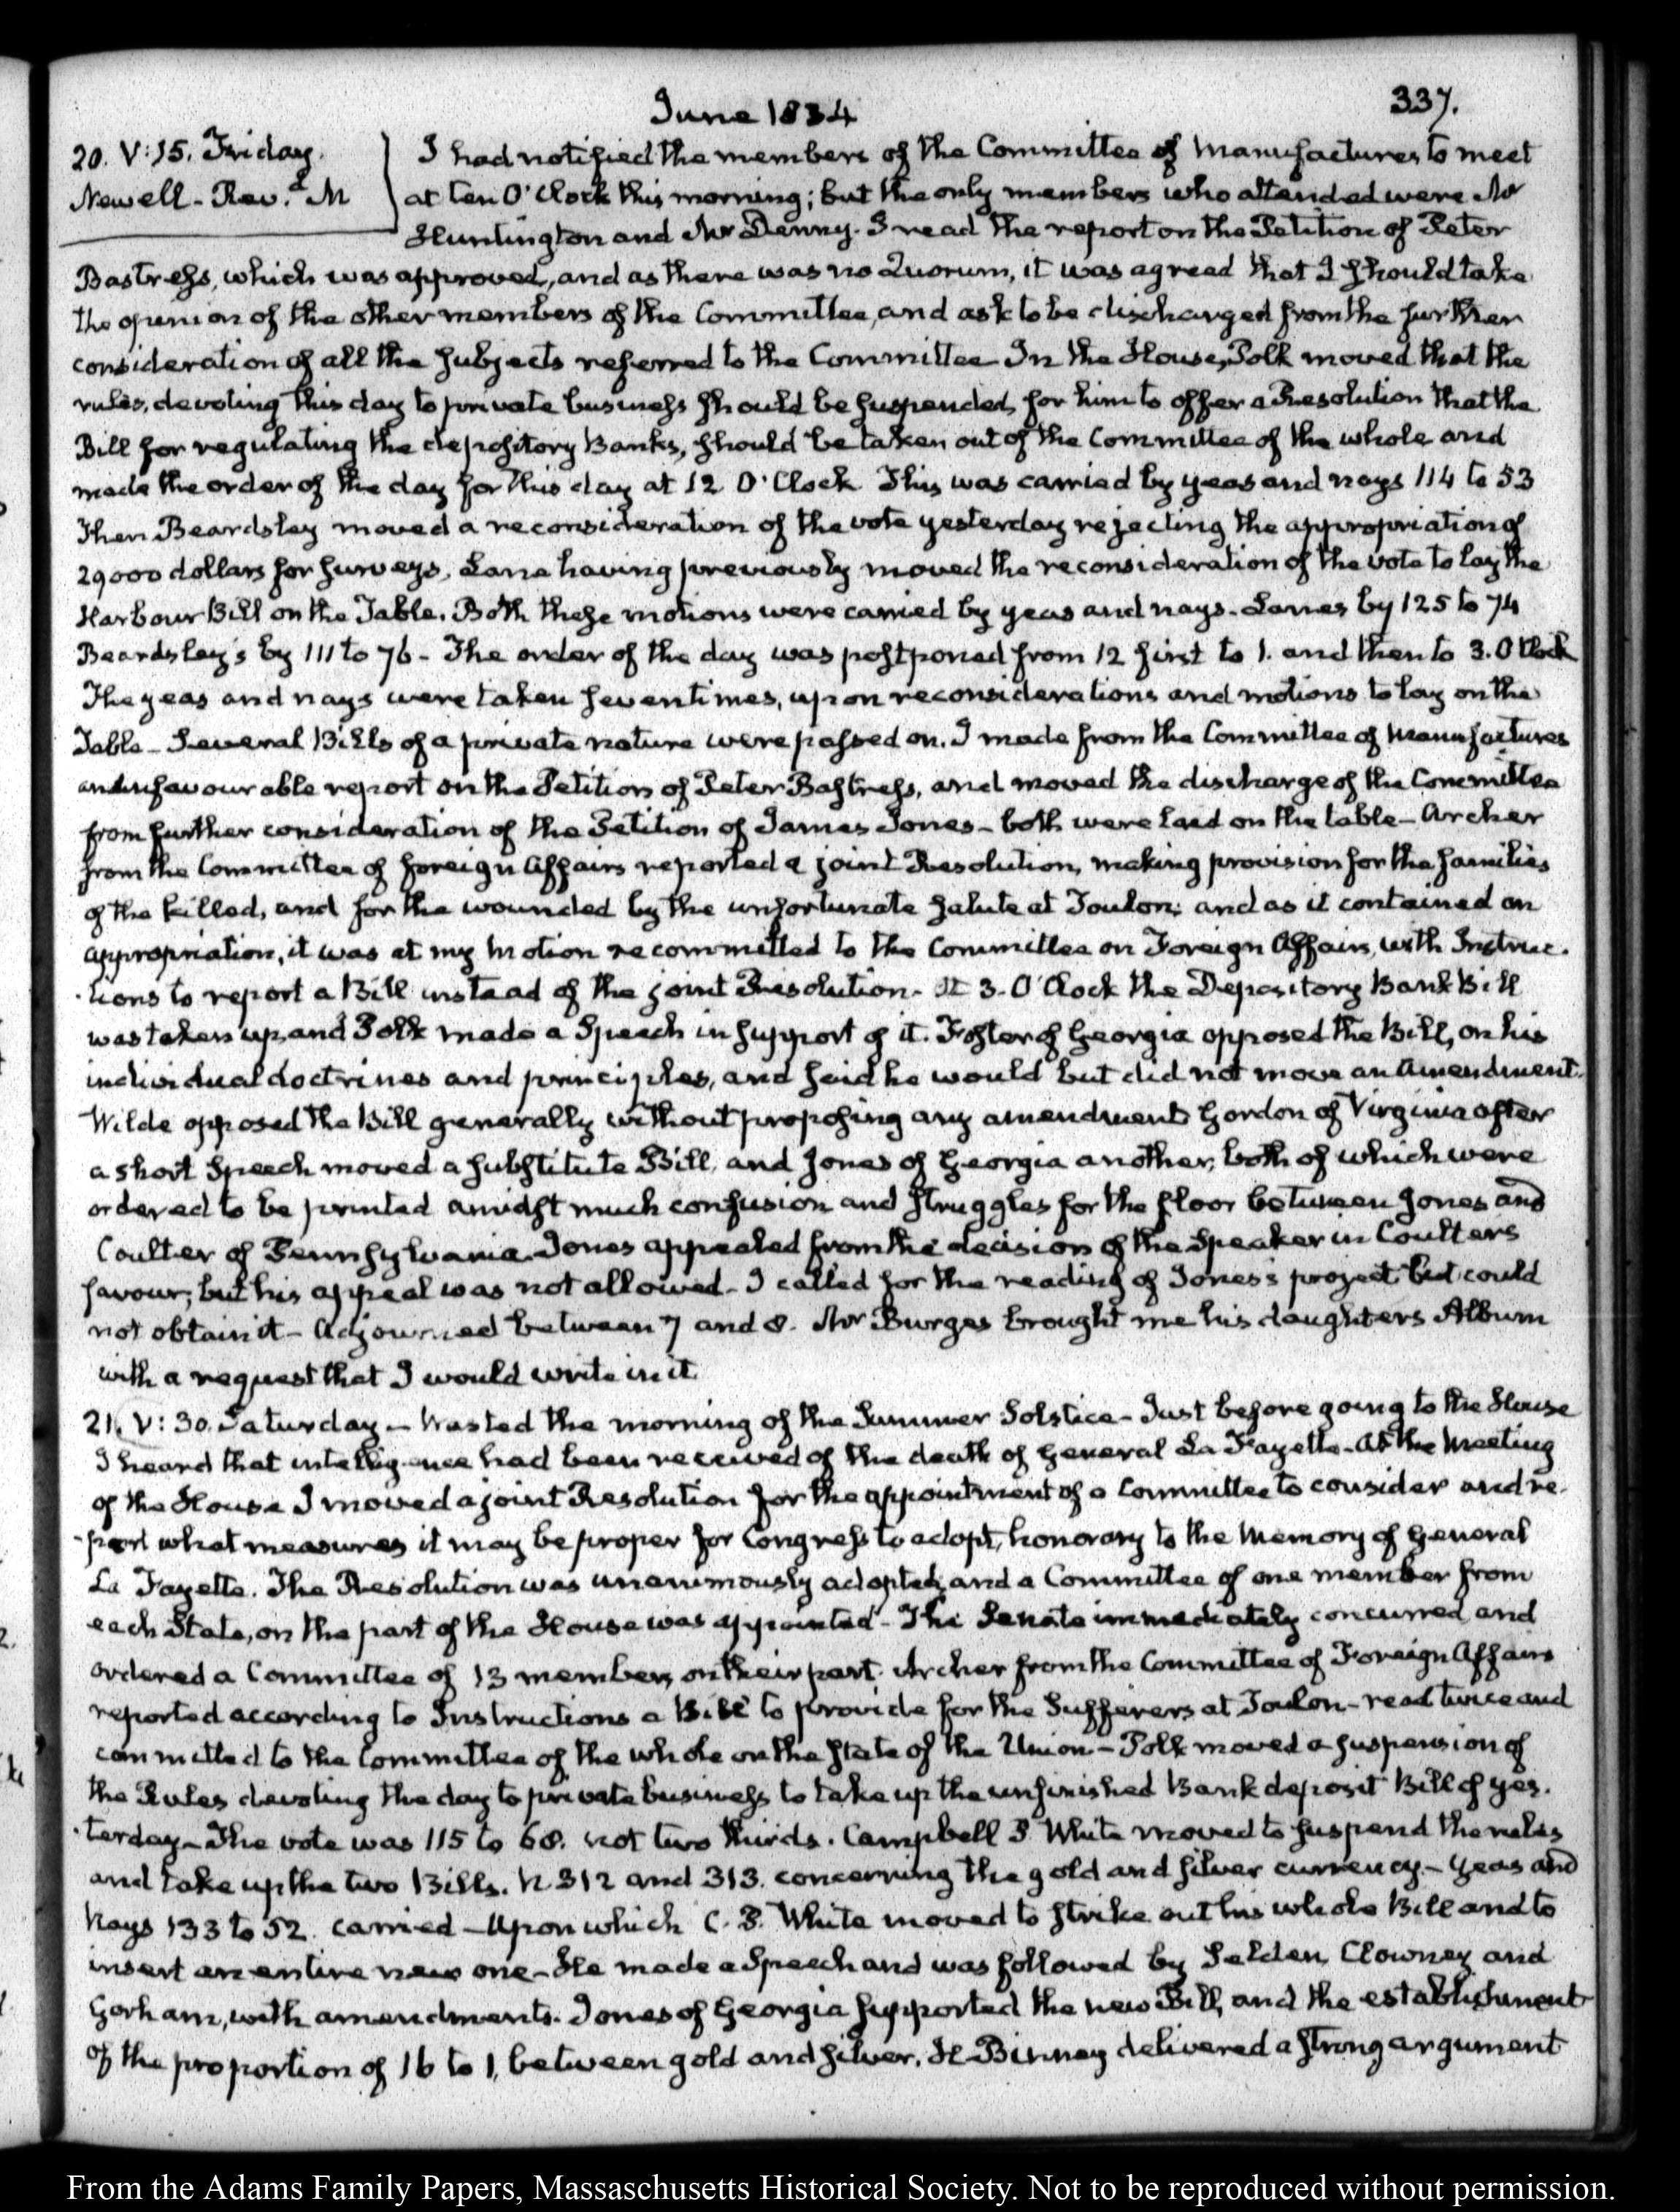 June 1834
337.
20. V:15. Friday.
Newell - Rev.d M
I had notified the members of the Committee of Manufactures to meet
at ten O'Clock this morning; but the only members who attended were Mr
Huntington and Mr Denny. I read the report on the Petition of Peter
Bastress, which was approved, and as there was no Quorum, it was agreed that I should take
the opinion of the other members of the Committee, and ask to be discharged from the further
consideration of all the subjects referred to the Committee In the House, Polk moved that the
rules, devoting this day to private business should be suspended, for him to offer a Resolution that the
Bill for regulating the depository Banks, should be taken out of the Committee of the whole and
made the order of the day for this day at 12 O'Clock This was carried by yeas and nays 114 to 53
Then Beardsley moved a reconsideration of the vote yesterday rejecting the appropriation of
29000 dollars for surveys, Lane having previously moved the reconsideration of the vote to lay the
Harbour Bill on the Table. Both these motions were carried by yeas and nays - Lanes by 125 to 74
Beardsley's by 111 to 76 - The order of the day was postponed from 12 first to 1. and then to 3. O'Clock
The yeas and nays were taken seven times, upon reconsiderations and motions to lay on the
Table - Several Bills of a private nature were passed on. I made from the Committee of Manufactures
an unfavourable report on the Petition of Peter Bastress, and moved the discharge of the Committee
from further consideration of the Petition of James Jones - both were laid on the table - Archer
from the Committee of foreign Affairs reported a joint Resolution, making provision for the families
of the killed, and for the wounded by the unfortunate salute at Toulon; and as it contained an
appropriation, it was at my motion recommitted to the Committee on Foreign Affairs, with Instruc-
-tions to report a Bill instead of the joint Resolution - At 3. O'Clock the Depository Bank Bill
was taken up, and Polk made a Speech in support of it. Foster of Georgia opposed the Bill, on his
individual doctrines and principles, and said he would but did not move an Amendment.
Wilde opposed the Bill generally without proposing any amendment Gordon of Virginia after
a short Speech moved a substitute Bill, and Jones of Georgia another, both of which were
ordered to be printed amidst much confusion and struggles for the floor between Jones and
Coulter of Pennsylvania. Jones appealed from the decision of the Speaker in Coulters
favour; but his appeal was not allowed - I called for the reading of Jones's project but could
not obtain it - Adjourned between 7 and 8. Mr Burges brought me his daughters Album
with a request that I would write in it.
21. V:30. Saturday - Wasted the morning of the Summer Solstice - Just before going to the House
I heard that intelligence had been received of the death of General La Fayette - At the Meeting
of the House I moved a joint Resolution for the appointment of a Committee to consider and re-
-port what measures it may be proper for Congress to adopt, honorary to the Memory of General
La Fayette. The Resolution was unanimously adopted, and a Committee of one member from
each State, on the part of the House was appointed - The Senate immediately concurred, and
ordered a Committee of 13 members on their part. Archer from the Committee of Foreign Affairs
reported according to Instructions a Bill to provide for the Sufferers at Toulon - read twice and
committed to the Committee of the whole on the state of the Union - Polk moved a suspension of
the Rules devoting the day to private business to take up the unfinished Bank deposit Bill of yes-
-terday - The vote was 115 to 68. not two thirds. Campbell P. White moved to suspend the rules
and take up the two Bills. N. 312 and 313. concerning the gold and silver currency - Yeas and
Nays 133 to 52. carried - Upon which C. P. White moved to strike out his whole Bill and to
insert an entire new one - He made a Speech and was followed by Selden, Clowney and
Gorham, with amendments. Jones of Georgia supported the new Bill, and the establishment
of the proportion of 16 to 1, between gold and silver. H. Binney delivered a strong argument
From the Adams Family Papers, Massachusetts Historical Society. Not to be reproduced without permission.